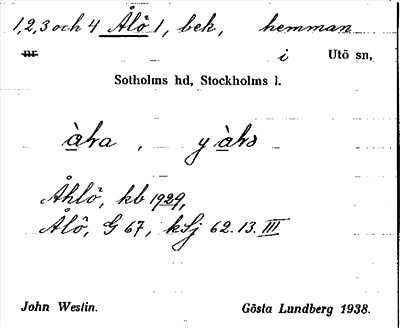 1,2,3 och 4 Ålö 1, bek, hemman
nr i Utö sn,
Sotholms hd, Stockholms l.
Åhlö, kb 1929,
Ålö, G 67, kSj 62.13. III
John Westin. Gösta Lundberg 1938.